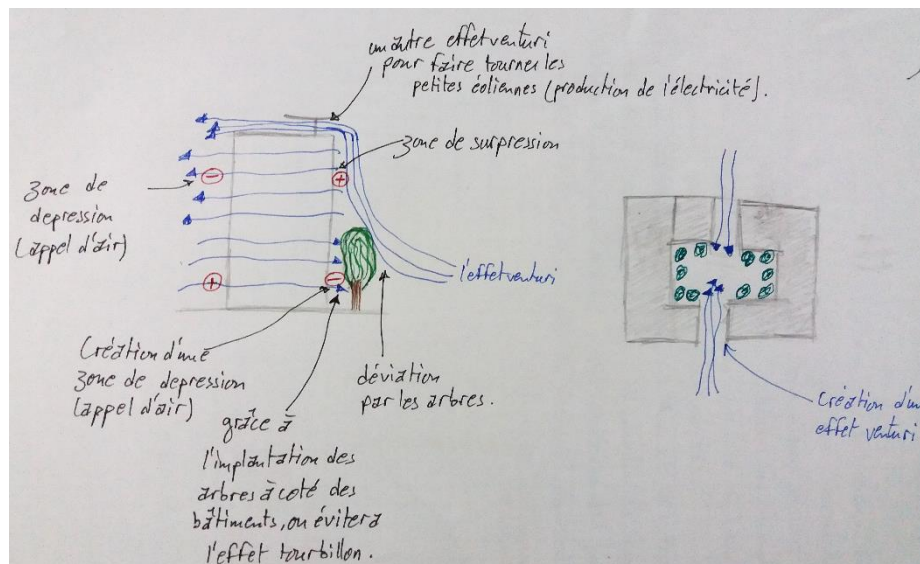 un autre effet venturi
pour faire tourner les
petites éoliennes (production de l'électricité).
zone de surpression
zone de
depression
(appel d'air)
l'effet venturi
Création d'une
zone de depression
(appel d'air)
grâce à
l'implantation des
arbres à coté des
bâtiments, on évitera
l'effet tourbillon.
déviation
par les arbres.
Création d'un
effet venturi